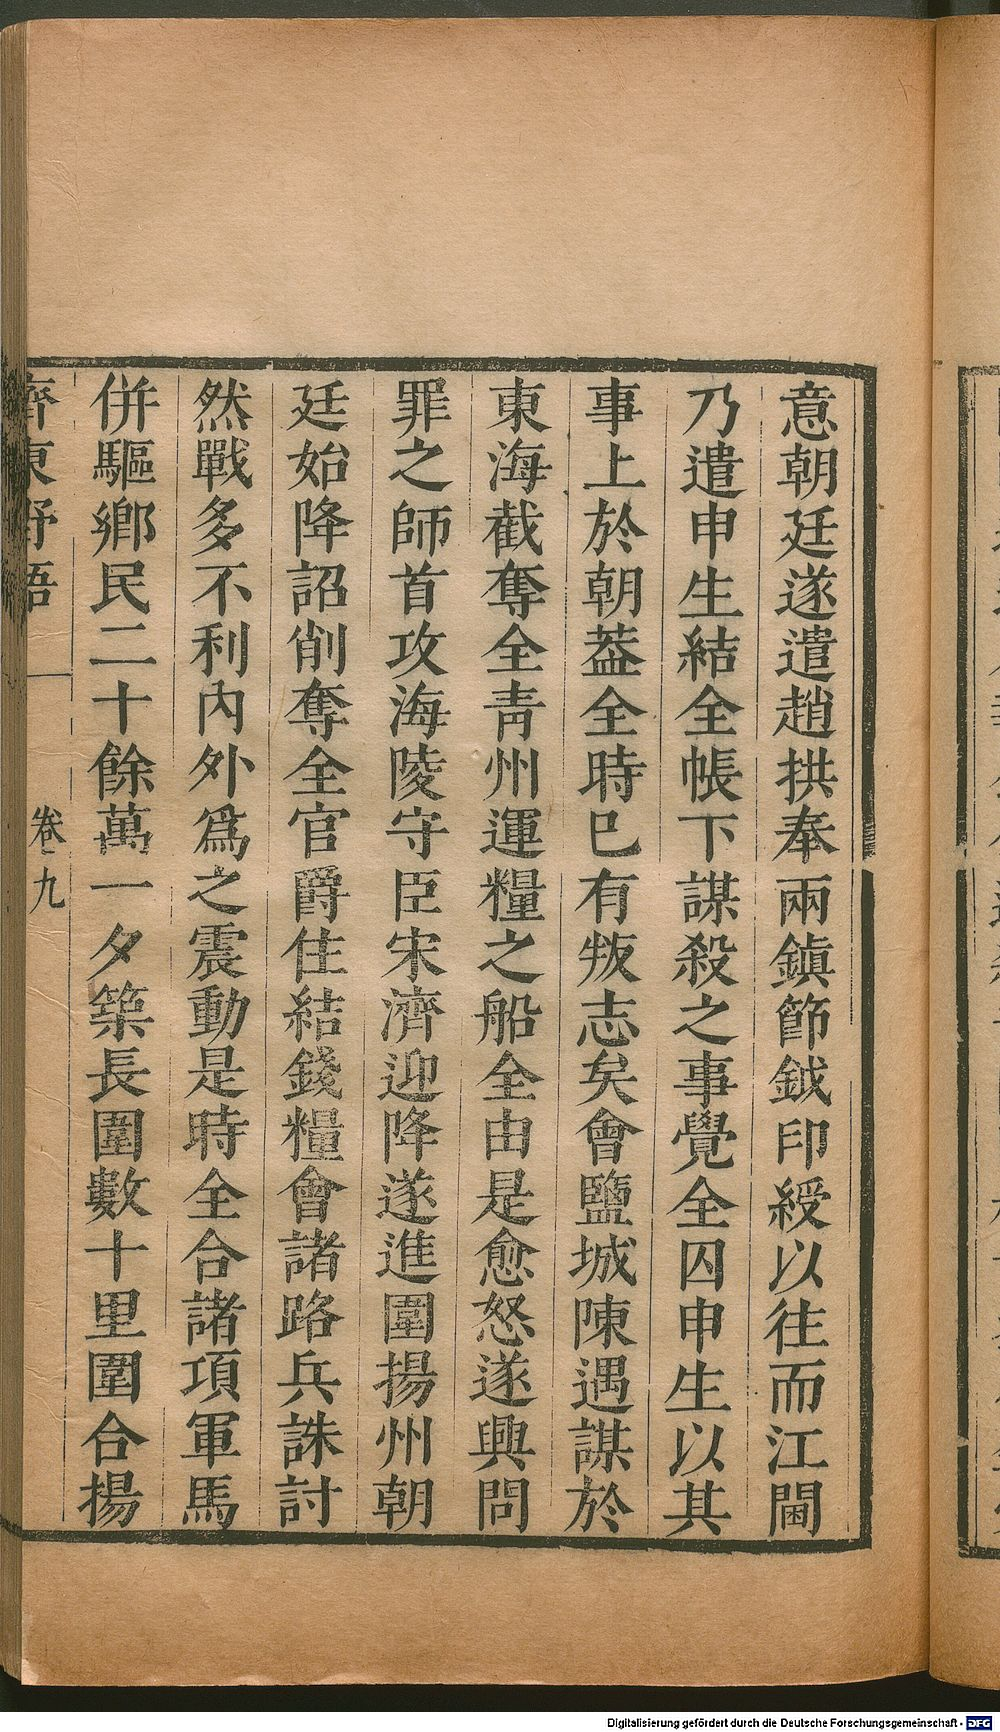 意朝廷遂遣趙拱奉兩鎮節鉞印綬以往而江閫
乃遣申生結全帳下謀殺之事覺全囚申生以其
事上於朝葢全時巳有叛志矣會鹽城陳遇謀於
東海截奪全青州運糧之船全由是愈怒遂興問
罪之師首攻海陵守臣宋濟迎降遂進圍揚州朝
廷始降詔削奪全官爵住結錢糧會諸路兵誅討
然戰多不利內外爲之震動是時全合諸項軍馬
併驅鄉民二十餘萬一夕築長圍數十里圍合揚
齊東野語
卷九
Digitalisierung gefördert durch die Deutsche Forschungsgemeinschaft - DFG